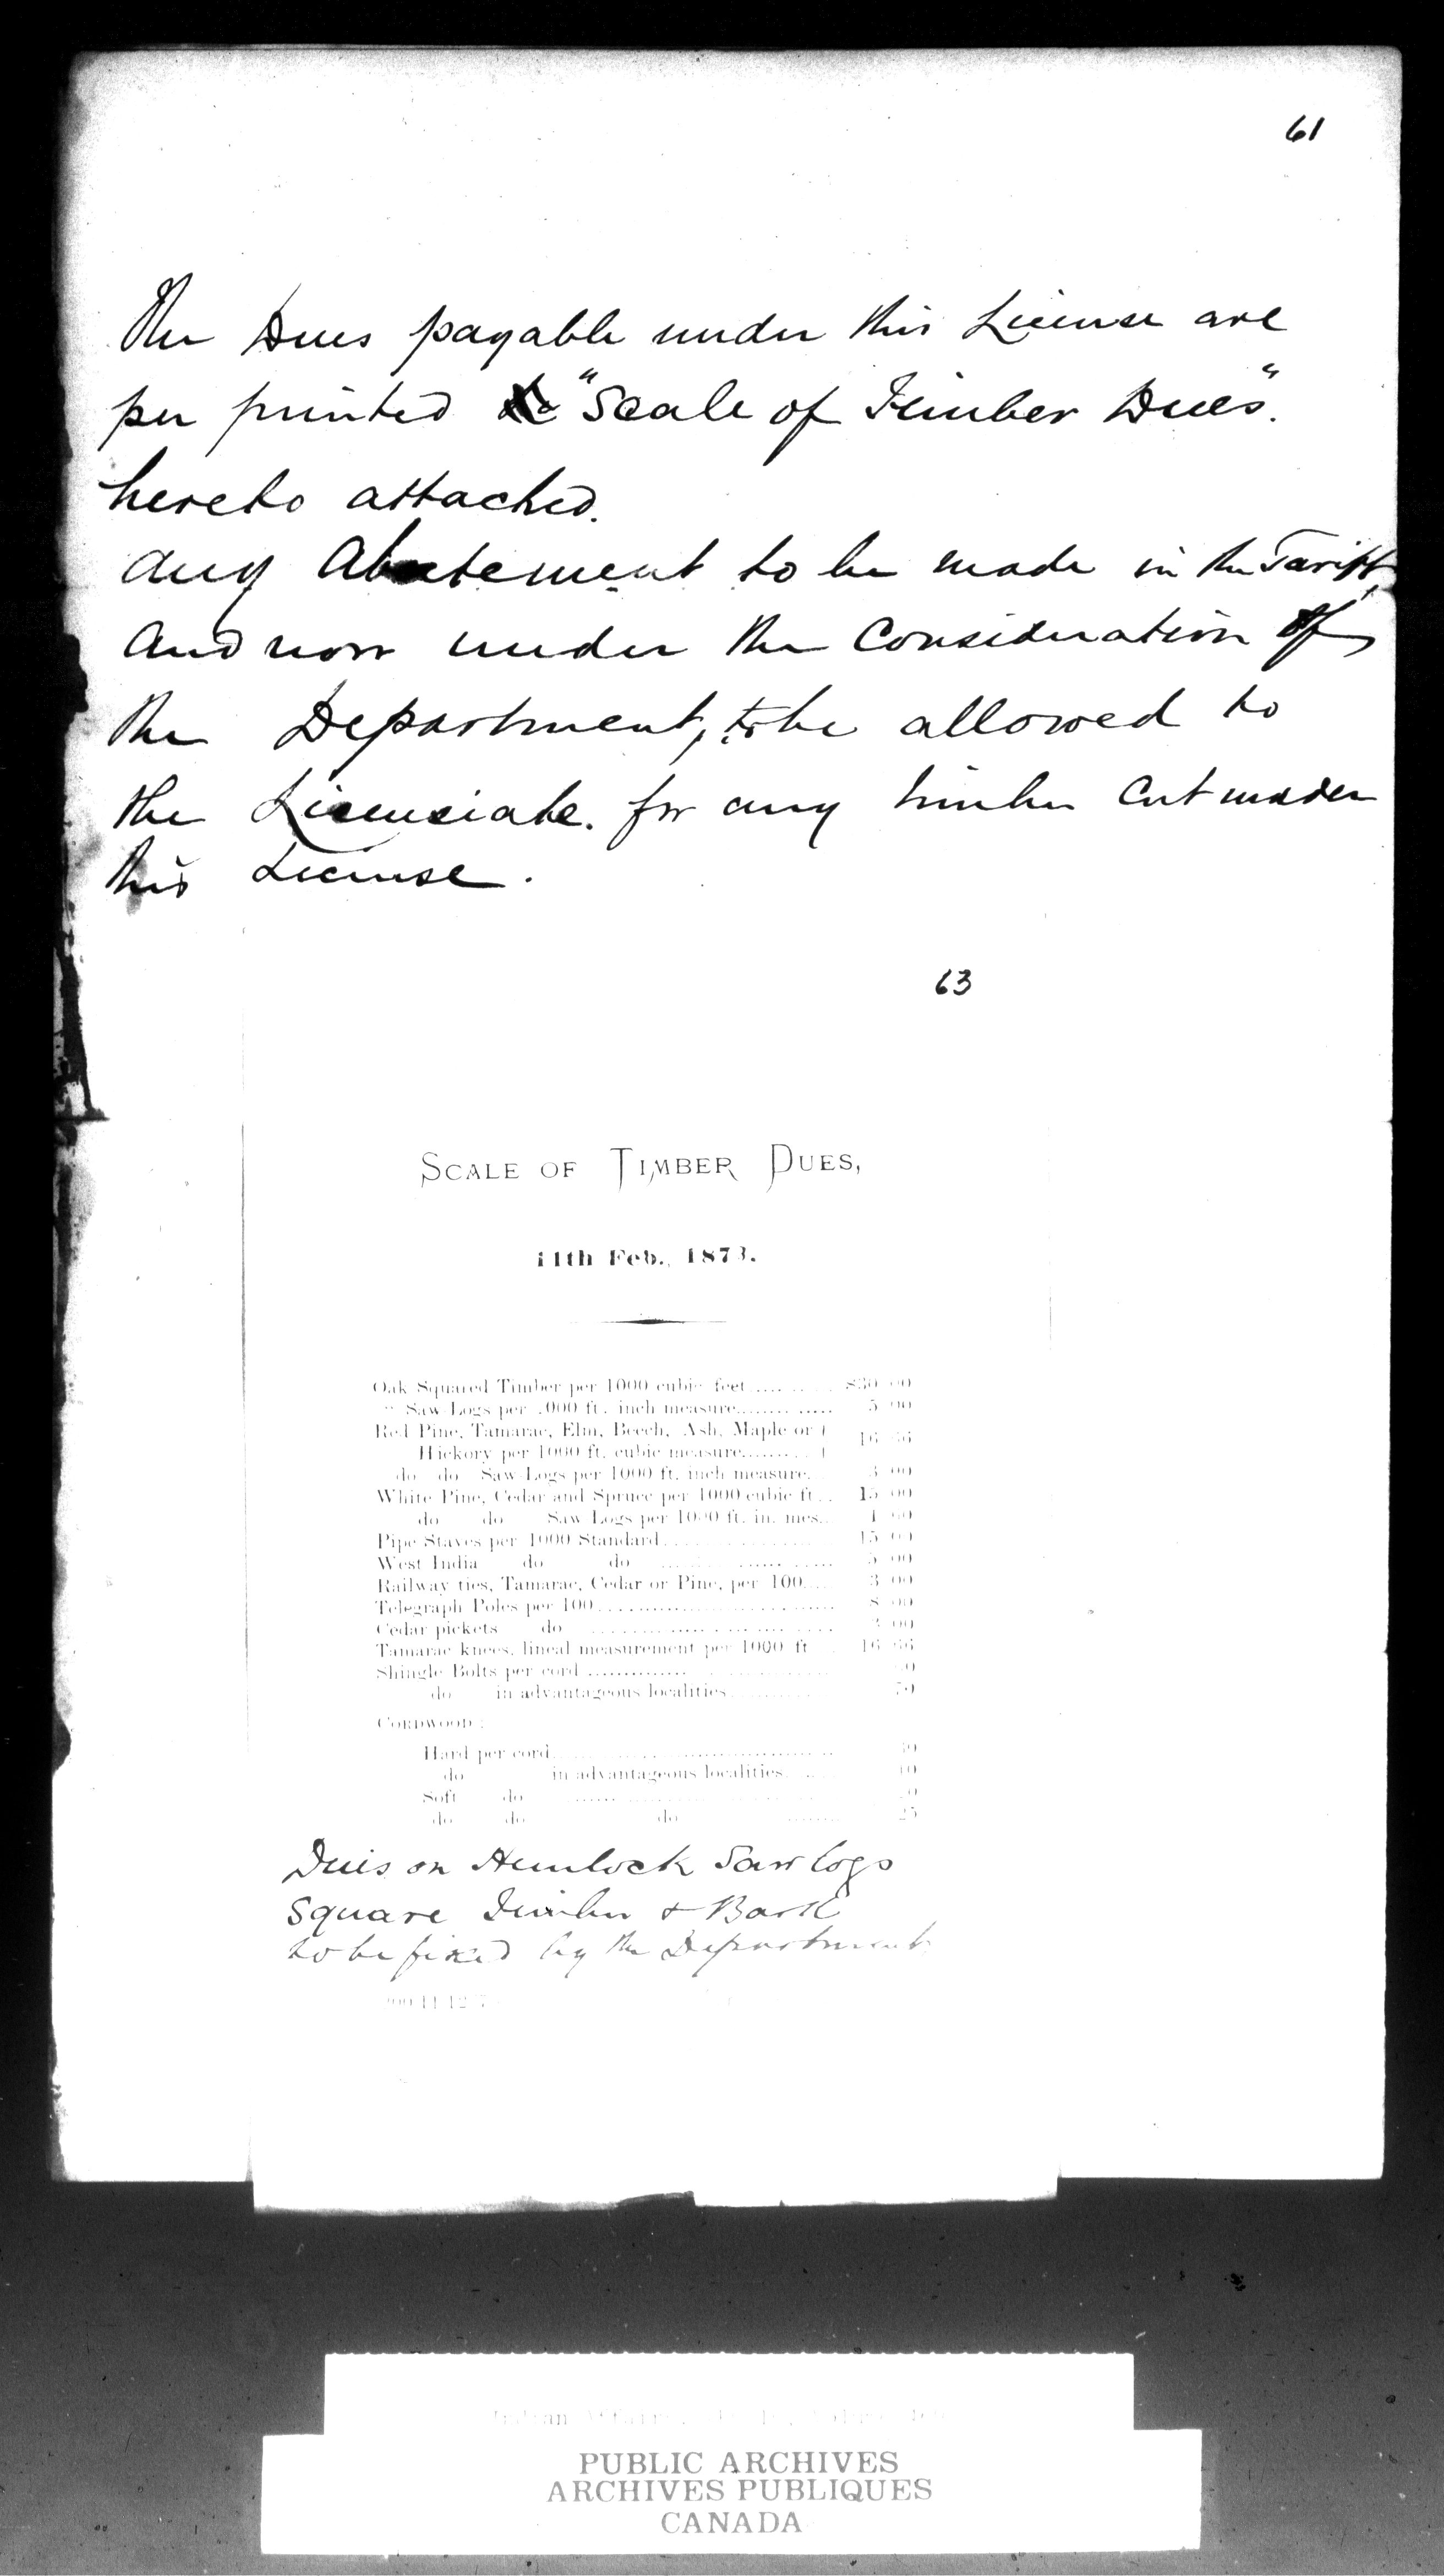 61
The Dues payable under this License are
per printed "Scale of Timber Dues".
hereto attached.
Any Abatement to be made in the Tariff,
and now under the Consideration of
the Department, to be allowed to
the Licenciate. for any timber cut under
this License.
63
SCALE OF TIMBER DUES,
11th Feb., 1873.
Oak Squared Timber per 1000 cubic feet............ $30 00
" Saw Logs per 1000 ft. inch measure............ 5 00
Red Pine, Tamarac, Elm, Beech, Ash, Maple or
Hickory per 1000 ft. cubic measure......... 16 66
do do Saw-Logs per 1000 ft. inch measure... 3 00
White Pine, Cedar and Spruce per 1000 cubic ft... 15 00
do do Saw Logs per 1000 ft. in. mes..
Pipe Staves per 1000 Standard.................. 15 00
West India do do .................. 5 00
Railway ties, Tamarac, Cedar or Pine, per 100..... 3 00
Telegraph Poles per 100........................ 8 00
Cedar pickets do ........................
Tamarac knees, lineal measurement per 1000 ft... 16 66
Shingle Bolts per cord ........................
do in advantageous localities............
CORDWOOD:
Hard per cord..............................
do in advantageous localities........
Soft do ........................
do do do ........ 25
Dues on Hemlock Saw logs
Square Timber & Bark
to be fixed by the Department
PUBLIC ARCHIVES
ARCHIVES PUBLIQUES
CANADA